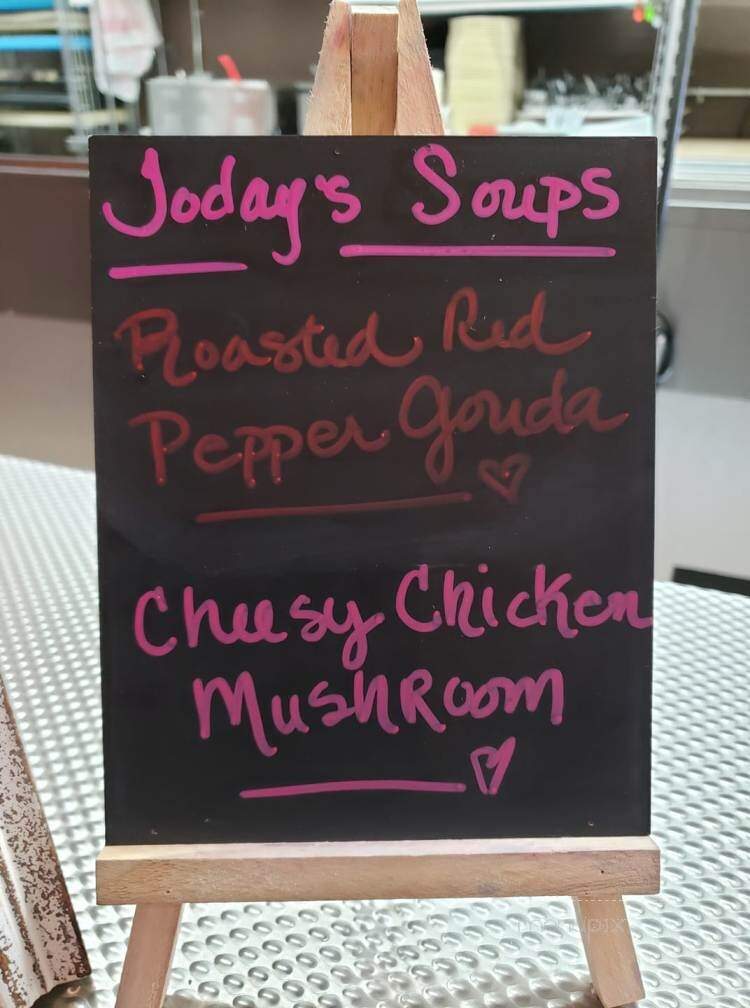 Today's Soups
Roasted Red
Pepper Gouda
Cheesy Chicken
MushRoom